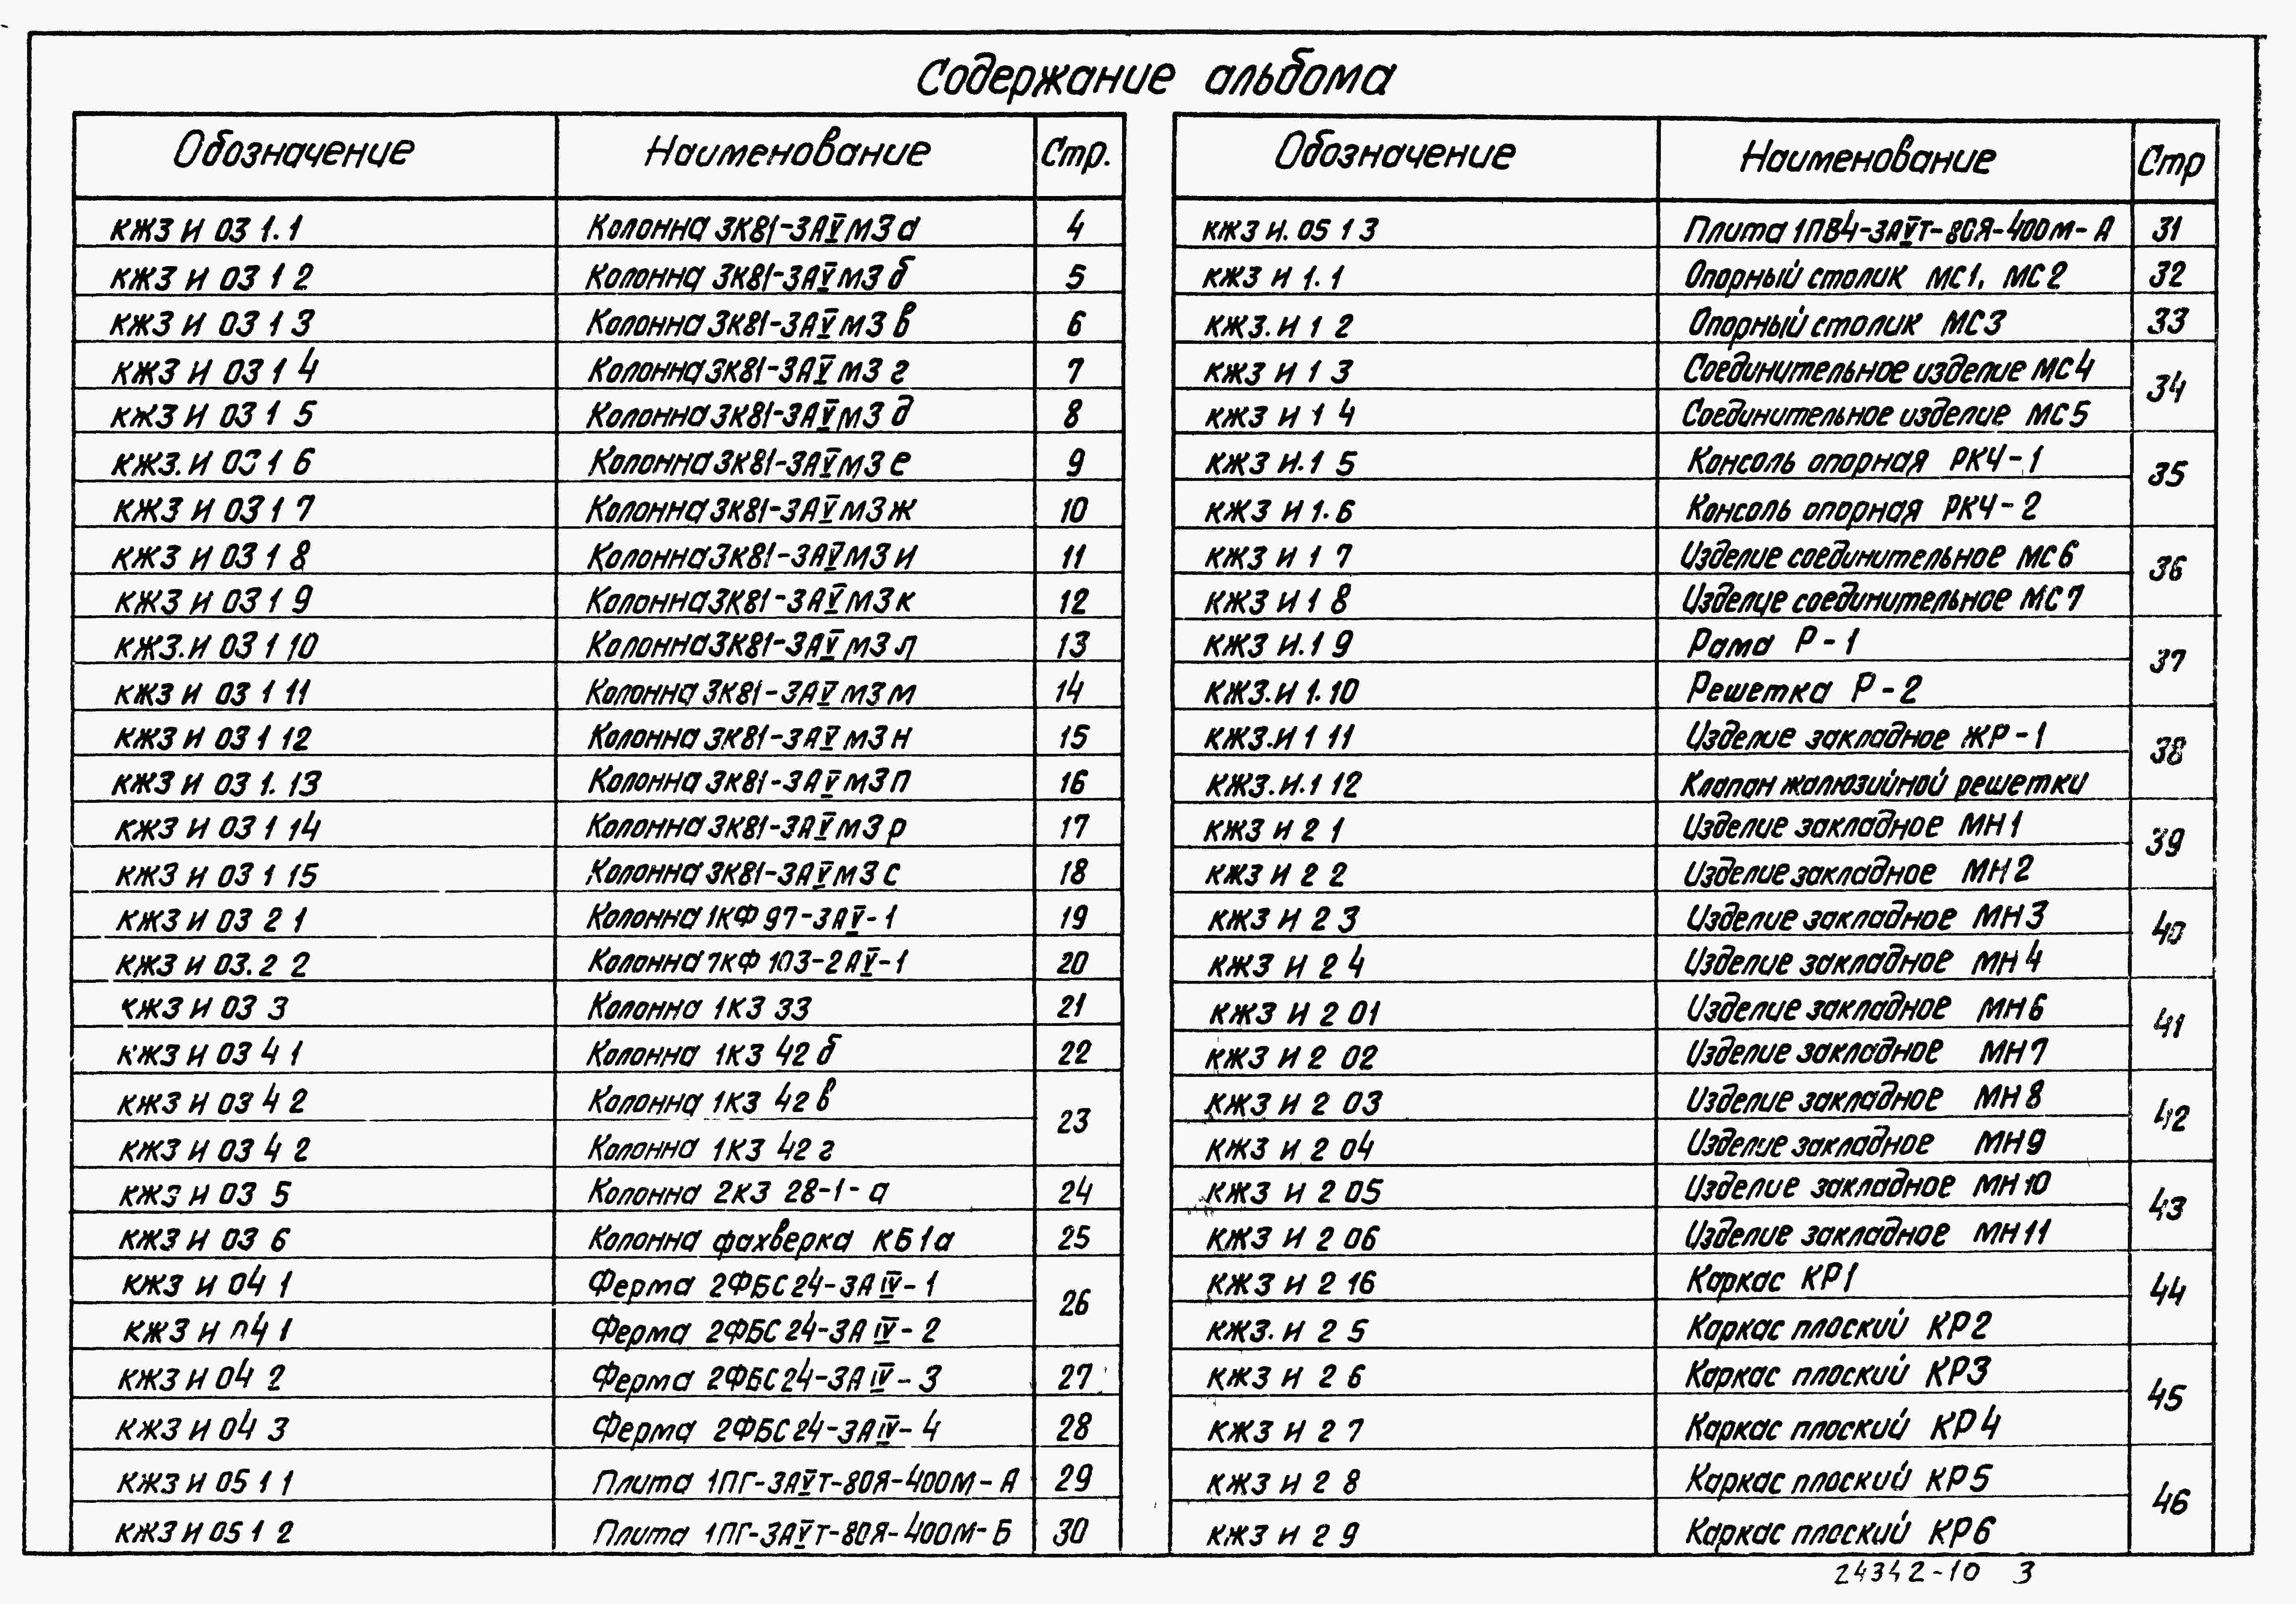 Содержание альбома
Обозначение Наименование Стр.
КЖЗ И 03 1.1 Колонна 3К81-3АⅤМ3а 4
КЖЗ И 03 1 2 Колонна 3К81-3АⅤМ3б 5
КЖЗ И 03 1 3 Колонна 3К81-3АⅤМ3в 6
КЖЗ И 03 1 4 Колонна 3К81-3АⅤМ3г 7
КЖЗ И 03 1 5 Колонна 3К81-3АⅤМ3д 8
КЖЗ.И 03 1 6 Колонна 3К81-3АⅤМ3е 9
КЖЗ И 03 1 7 Колонна 3К81-3АⅤМ3ж 10
КЖЗ И 03 1 8 Колонна 3К81-3АⅤМ3и 11
КЖЗ И 03 1 9 Колонна 3К81-3АⅤМ3к 12
КЖЗ.И 03 1 10 Колонна 3К81-3АⅤМ3л 13
КЖЗ И 03 1 11 Колонна 3К81-3АⅤМ3м 14
КЖЗ И 03 1 12 Колонна 3К81-3АⅤМ3н 15
КЖЗ И 03 1.13 Колонна 3К81-3АⅤМ3п 16
КЖЗ И 03 1 14 Колонна 3К81-3АⅤМ3р 17
КЖЗ И 03 1 15 Колонна 3К81-3АⅤМ3с 18
КЖЗ И 03 2 1 Колонна 1КФ97-3АⅤ-1 19
КЖЗ И 03.2 2 Колонна 7КФ103-2АⅤ-1 20
КЖЗ И 03 3 Колонна 1КЗ 33 21
КЖЗ И 03 4 1 Колонна 1КЗ 42б 22
КЖЗ И 03 4 2 Колонна 1КЗ 42в 23
КЖЗ И 03 4 2 Колонна 1КЗ 42г
КЖЗ И 03 5 Колонна 2КЗ 28-1-а 24
КЖЗ И 03 6 Колонна фахверка КБ1а 25
КЖЗ И 04 1 Ферма 2ФБС24-3АⅣ-1 26
КЖЗ И 04 1 Ферма 2ФБС24-3АⅣ-2
КЖЗ И 04 2 Ферма 2ФБС24-3АⅣ-3 27
КЖЗ И 04 3 Ферма 2ФБС24-3АⅣ-4 28
КЖЗ И 05 1 1 Плита 1ПГ-3АⅤТ-80Я-400М-А 29
КЖЗ И 05 1 2 Плита 1ПГ-3АⅤТ-80Я-400М-Б 30
Обозначение Наименование Стр
КЖЗ И. 05 1 3 Плита 1ПВ4-3АⅤТ-80Я-400М-А 31
КЖЗ И 1.1 Опорный столик МС1, МС2 32
КЖЗ.И 1 2 Опорный столик МС3 33
КЖЗ И 1 3 Соединительное изделие МС4 34
КЖЗ И 1 4 Соединительное изделие МС5
КЖЗ И.1 5 Консоль опорная РКЧ-1 35
КЖЗ И 1.6 Консоль опорная РКЧ-2
КЖЗ И 1 7 Изделие соединительное МС6 36
КЖЗ И 1 8 Изделие соединительное МС7
КЖЗ И.1 9 Рама Р-1 37
КЖЗ.И 1.10 Решетка Р-2
КЖЗ.И 1 11 Изделие закладное ЖР-1 38
КЖЗ.И.1 12 Клапан жалюзийной решетки
КЖЗ И 2 1 Изделие закладное МН1 39
КЖЗ И 2 2 Изделие закладное МН2
КЖЗ И 2 3 Изделие закладное МН3 40
КЖЗ И 2 4 Изделие закладное МН4
КЖЗ И 2 01 Изделие закладное МН6 41
КЖЗ И 2 02 Изделие закладное МН7
КЖЗ И 2 03 Изделие закладное МН8 42
КЖЗ И 2 04 Изделие закладное МН9
КЖЗ И 2 05 Изделие закладное МН10 43
КЖЗ И 2 06 Изделие закладное МН11
КЖЗ И 2 16 Каркас КР1 44
КЖЗ. И 2 5 Каркас плоский КР2
КЖЗ И 2 6 Каркас плоский КР3 45
КЖЗ И 2 7 Каркас плоский КР4
КЖЗ И 2 8 Каркас плоский КР5 46
КЖЗ И 2 9 Каркас плоский КР6
24342-10 3